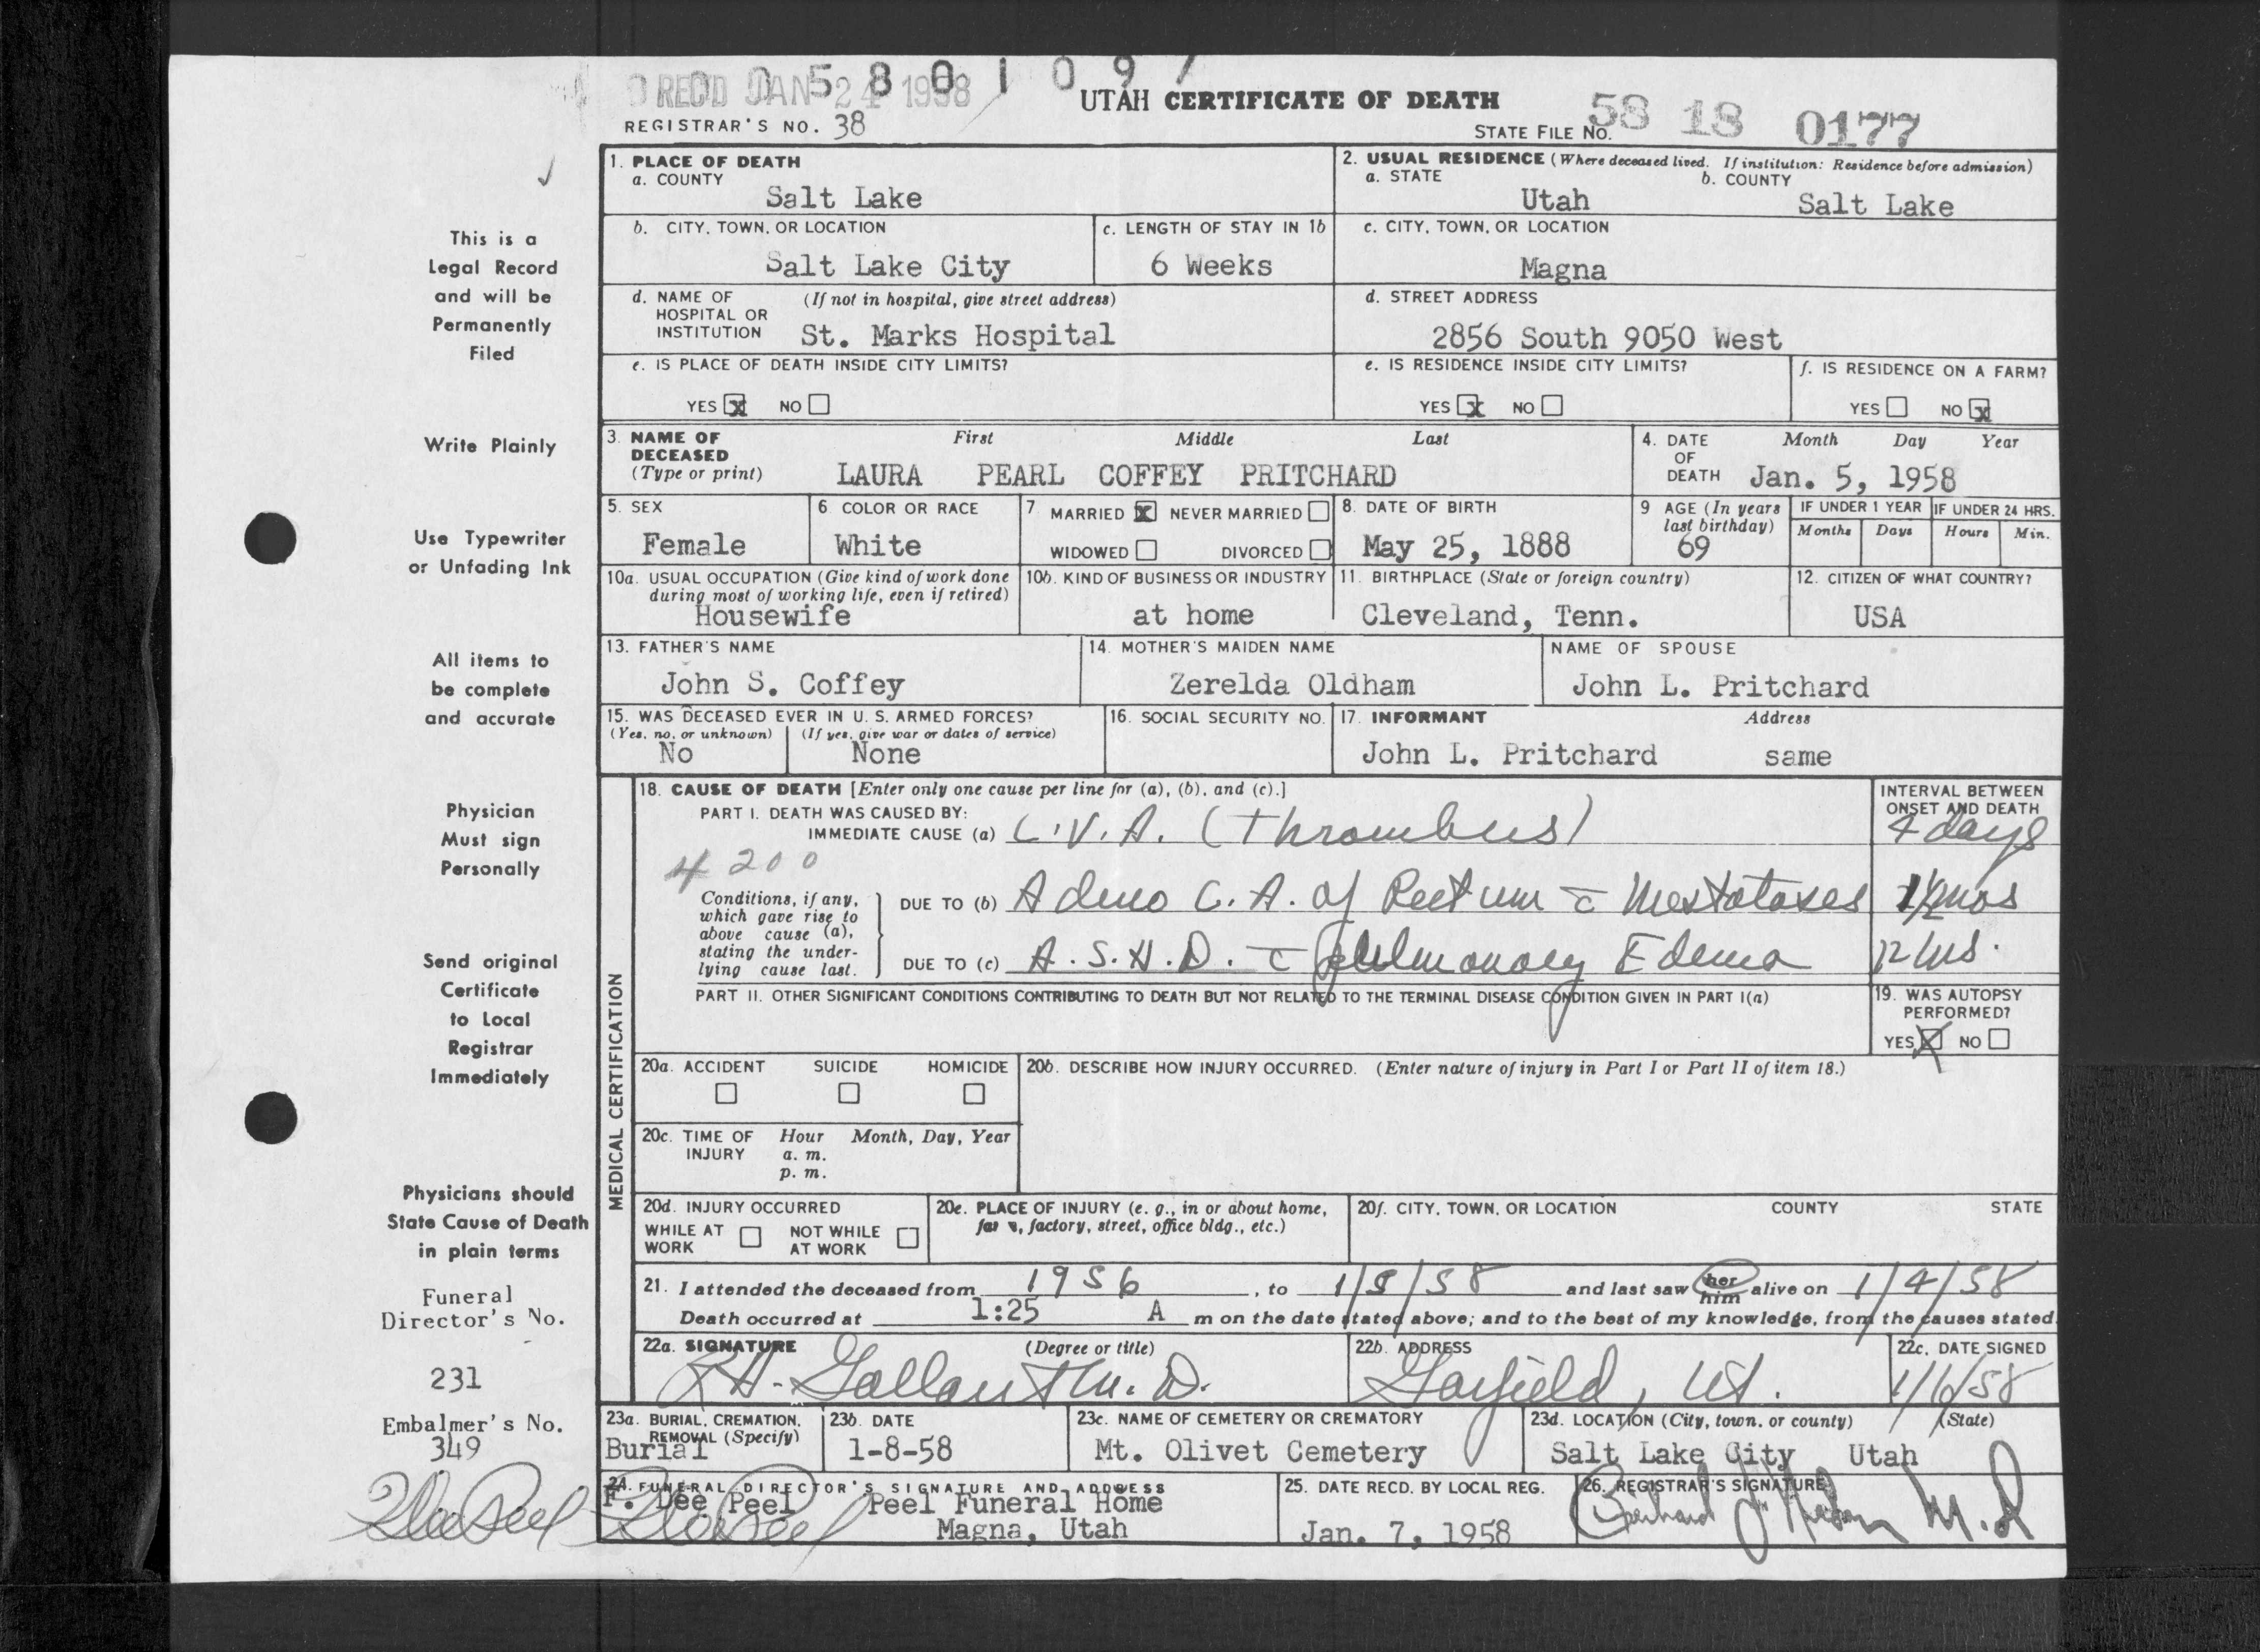 REC'D JAN 24 1958
0 5 8 0 1 0 9 7
UTAH CERTIFICATE OF DEATH
REGISTRAR'S NO. 38
STATE FILE NO. 58 18 0177
This is a
Legal Record
and will be
Permanently
Filed
Write Plainly
Use Typewriter
or Unfading Ink
All items to
be complete
and accurate
Physician
Must sign
Personally
Send original
Certificate
to Local
Registrar
Immediately
Physicians should
State Cause of Death
in plain terms
Funeral
Director's No.
231
Embalmer's No.
349
1. PLACE OF DEATH
a. COUNTY
Salt Lake
2. USUAL RESIDENCE (Where deceased lived. If institution: Residence before admission)
a. STATE b. COUNTY
Utah Salt Lake
b. CITY, TOWN, OR LOCATION
Salt Lake City
c. LENGTH OF STAY IN 1b
6 Weeks
c. CITY, TOWN, OR LOCATION
Magna
d. NAME OF (If not in hospital, give street address)
HOSPITAL OR
INSTITUTION St. Marks Hospital
d. STREET ADDRESS
2856 South 9050 West
e. IS PLACE OF DEATH INSIDE CITY LIMITS?
YES X NO
e. IS RESIDENCE INSIDE CITY LIMITS?
YES X NO
f. IS RESIDENCE ON A FARM?
YES NO X
3. NAME OF First Middle Last
DECEASED
(Type or print) LAURA PEARL COFFEY PRITCHARD
4. DATE Month Day Year
OF
DEATH Jan. 5, 1958
5. SEX
Female
6. COLOR OR RACE
White
7. MARRIED X NEVER MARRIED
WIDOWED DIVORCED
8. DATE OF BIRTH
May 25, 1888
9 AGE (In years
last birthday)
69
IF UNDER 1 YEAR IF UNDER 24 HRS.
Months Days Hours Min.
10a. USUAL OCCUPATION (Give kind of work done
during most of working life, even if retired)
Housewife
10b. KIND OF BUSINESS OR INDUSTRY
at home
11. BIRTHPLACE (State or foreign country)
Cleveland, Tenn.
12. CITIZEN OF WHAT COUNTRY?
USA
13. FATHER'S NAME
John S. Coffey
14. MOTHER'S MAIDEN NAME
Zerelda Oldham
NAME OF SPOUSE
John L. Pritchard
15. WAS DECEASED EVER IN U. S. ARMED FORCES?
(Yes, no, or unknown) (If yes, give war or dates of service)
No None
16. SOCIAL SECURITY NO.
17. INFORMANT Address
John L. Pritchard same
MEDICAL CERTIFICATION
18. CAUSE OF DEATH [Enter only one cause per line for (a), (b), and (c).]
INTERVAL BETWEEN
ONSET AND DEATH
PART I. DEATH WAS CAUSED BY:
IMMEDIATE CAUSE (a) C.V.A. (Thrombus) 4 days
4 2 0 0
Conditions, if any,
which gave rise to
above cause (a),
stating the under-
lying cause last.
DUE TO (b) Adeno C.A. of Rectum c̄ Mestatases 1½ mos
DUE TO (c) A.S.H.D. c̄ Pulmonary Edema 12 hrs.
PART II. OTHER SIGNIFICANT CONDITIONS CONTRIBUTING TO DEATH BUT NOT RELATED TO THE TERMINAL DISEASE CONDITION GIVEN IN PART I(a)
19. WAS AUTOPSY
PERFORMED?
YES X NO
20a. ACCIDENT SUICIDE HOMICIDE
20b. DESCRIBE HOW INJURY OCCURRED. (Enter nature of injury in Part I or Part II of item 18.)
20c. TIME OF Hour Month, Day, Year
INJURY a. m.
p. m.
20d. INJURY OCCURRED
WHILE AT NOT WHILE
WORK AT WORK
20e. PLACE OF INJURY (e. g., in or about home,
farm, factory, street, office bldg., etc.)
20f. CITY, TOWN, OR LOCATION COUNTY STATE
21. I attended the deceased from 1956, to 1/5/58 and last saw her him alive on 1/4/58
Death occurred at 1:25 A m on the date stated above; and to the best of my knowledge, from the causes stated.
22a. SIGNATURE (Degree or title)
Gallant M.D.
22b. ADDRESS
Garfield, Ut.
22c. DATE SIGNED
1/6/58
23a. BURIAL, CREMATION,
REMOVAL (Specify)
Burial
23b. DATE
1-8-58
23c. NAME OF CEMETERY OR CREMATORY
Mt. Olivet Cemetery
23d. LOCATION (City, town, or county) (State)
Salt Lake City Utah
24. FUNERAL DIRECTOR'S SIGNATURE AND ADDRESS
F. Dee Peel Peel Funeral Home
Magna, Utah
25. DATE RECD. BY LOCAL REG.
Jan. 7, 1958
26. REGISTRAR'S SIGNATURE
M.D